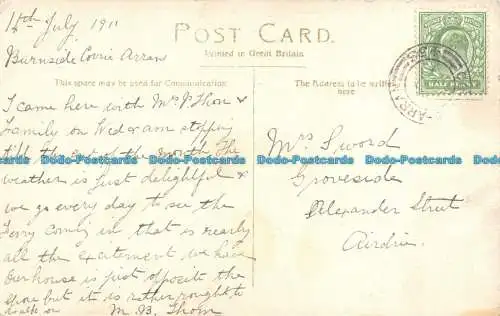 14th July 1911
Burnside Corrie Arran
POST CARD.
Printed in Great Britain
This space may be used for Communication
The Address to be written here
I came here with Mrs P Thom &
Family on Wed & am stopping
till the end of the month The
weather is just delightful &
we go every day to see the
ferry coming in that is nearly
all the excitement we have
Our house is just opposite the
shore but it is rather rough to
walk on
M. B. Thom
Mrs Sword
Groveside
Alexander Street
Airdrie
HALF PENNY
www.bobbooks.co.uk